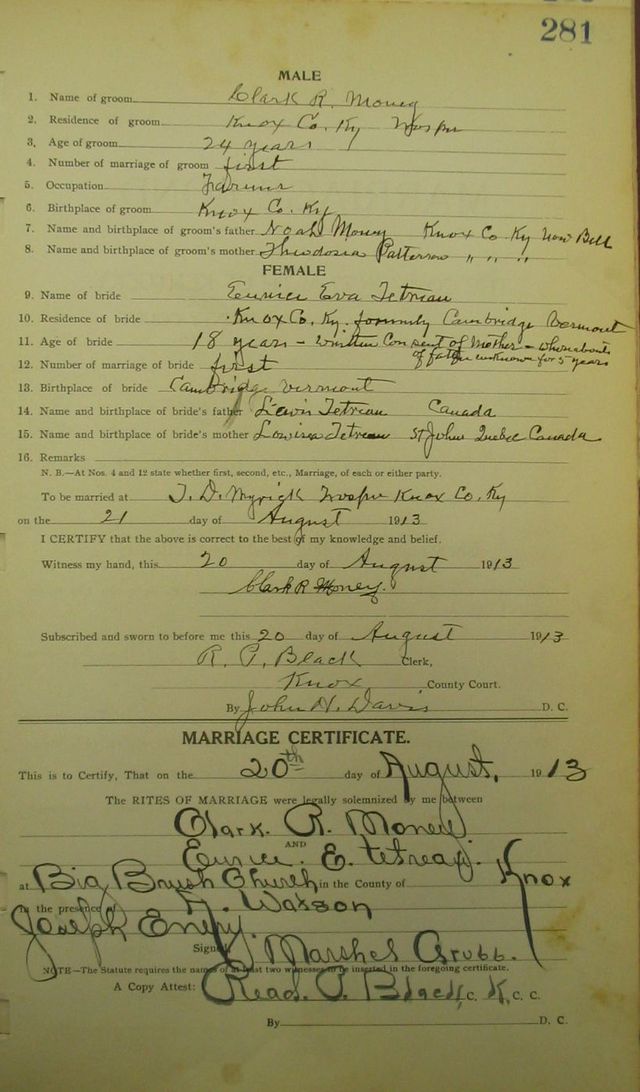 281
MALE
1. Name of groom Clark R. Money
2. Residence of groom Knox Co. Ky
3. Age of groom 24 years
4. Number of marriage of groom first
5. Occupation Farmer
6. Birthplace of groom Knox Co. Ky
7. Name and birthplace of groom's father Noah Money Knox Co Ky now Bell
8. Name and birthplace of groom's mother Theodosia Patterson " " "
FEMALE
9. Name of bride Eunice Eva Tetreau
10. Residence of bride Knox Co, Ky. formerly Cambridge Vermont
11. Age of bride 18 years - written Consent of Mother - whereabouts
of father unknown for 5 years
12. Number of marriage of bride first
13. Birthplace of bride Cambridge Vermont
14. Name and birthplace of bride's father Lewis Tetreau Canada
15. Name and birthplace of bride's mother Louisa Tetreau St John Quebec Canada
16. Remarks
N. B.—At Nos. 4 and 12 state whether first, second, etc., Marriage, of each or either party.
To be married at Knox Co. Ky
on the 21 day of August 1913
I CERTIFY that the above is correct to the best of my knowledge and belief.
Witness my hand, this 20 day of August 1913
Clark R Money.
Subscribed and sworn to before me this 20 day of August 1913
R. P. Black Clerk,
Knox County Court.
By John N. Davis D. C.
MARRIAGE CERTIFICATE.
This is to Certify, That on the 20th day of August, 1913
The RITES OF MARRIAGE were legally solemnized by me between
Clark. R. Money
AND
Eunice. E. tetreau.
at Big Brush Church in the County of Knox
in the presence of Watson
Joseph
Signed Marshel Grubb.
NOTE—The Statute requires the names of at least two witnesses to be inserted in the foregoing certificate.
A Copy Attest: Read. P. Black, C. K. C. C.
By D. C.